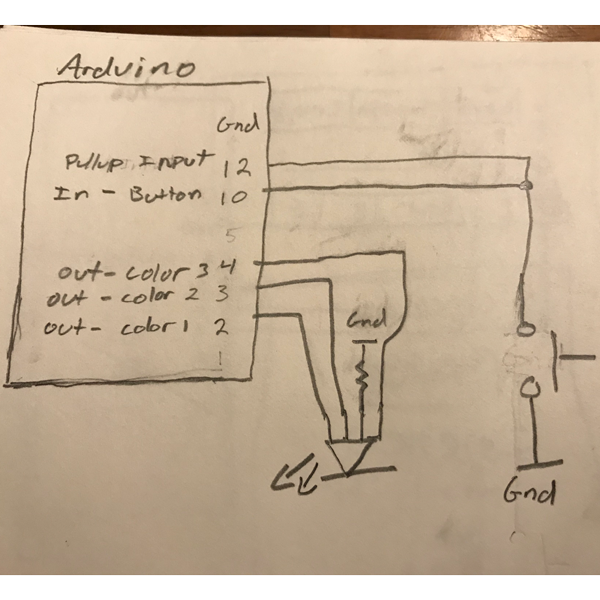 Arduino
Gnd
Pullup Input 12
In - Button 10
5
out - color 3 4
out - color 2 3
out - color 1 2
1
Gnd
Gnd